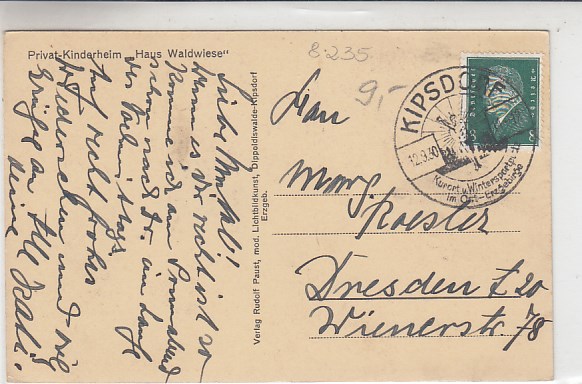 Privat-Kinderheim „Haus Waldwiese“
8235
9,-
Liebe
wenn es Dir recht ist so
komme ich am Sonnabend
schon nach Dr. im Laufe
des Vormittags
Auf recht frohes
Wiedersehen und viel
Grüße an Alle
Deine Käthi.
Verlag Rudolf Paust, mod. Lichtbildkunst, Dippoldiswalde-Kipsdorf
Erzgeb.
KIPSDORF
12.9.30
Kurort u. Wintersportplatz
im Ost-Erzgebirge
Deutsches Reich
8 8
Frau
Marg.
Koesler
Dresden A 20
Wienerstr. 78